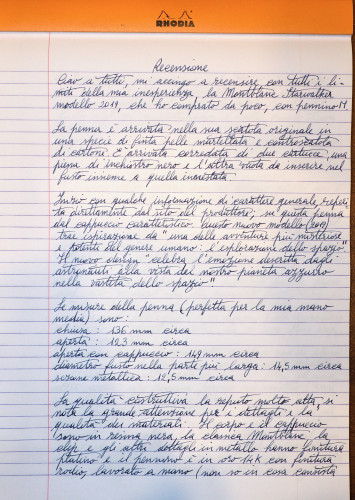 RHODIA
Recensione
Ciao a tutti, mi accingo a recensire, con tutti i li-
miti della mia inesperienza, la Montblanc Starwalker
modello 2019, che ho comprato da poco, con pennino M
La penna è arrivata nella sua scatola originale in
una specie di finta pelle martellata e controscatola
di cartone. È arrivata corredata di due cartucce, una
piena di inchiostro nero e l'altra vuota da inserire nel
fusto insieme a quella innestata.
Inizio con qualche informazione di carattere generale, reperi-
ta direttamente dal sito del produttore, su questa penna
dal cappuccio caratteristico. Questo nuovo modello (2019)
trae ispirazione da "una delle avventure più misteriose
e potenti del genere umano: l'esplorazione dello spazio".
Il nuovo design "celebra l'emozione descritta dagli
astronauti alla vista del nostro pianeta azzurro
nella vastità dello spazio"
Le misure della penna (perfetta per la mia mano
media) sono:
chiusa: 136 mm circa
aperta: 123 mm circa
aperta con cappuccio: 149 mm circa
diametro fusto nella parte più larga: 14,5 mm circa
sezione metallica: 12,5 mm circa
La qualità costruttiva la reputo molto alta, si
nota la grande attenzione per i dettagli e la
qualità dei materiali. Il corpo e il cappuccio
sono in resina nera, la classica Montblanc, la
clip e gli altri dettagli in metallo hanno finitura
platino e il pennino è in oro 14K con finitura
rodio, lavorato a mano (non so in cosa consista